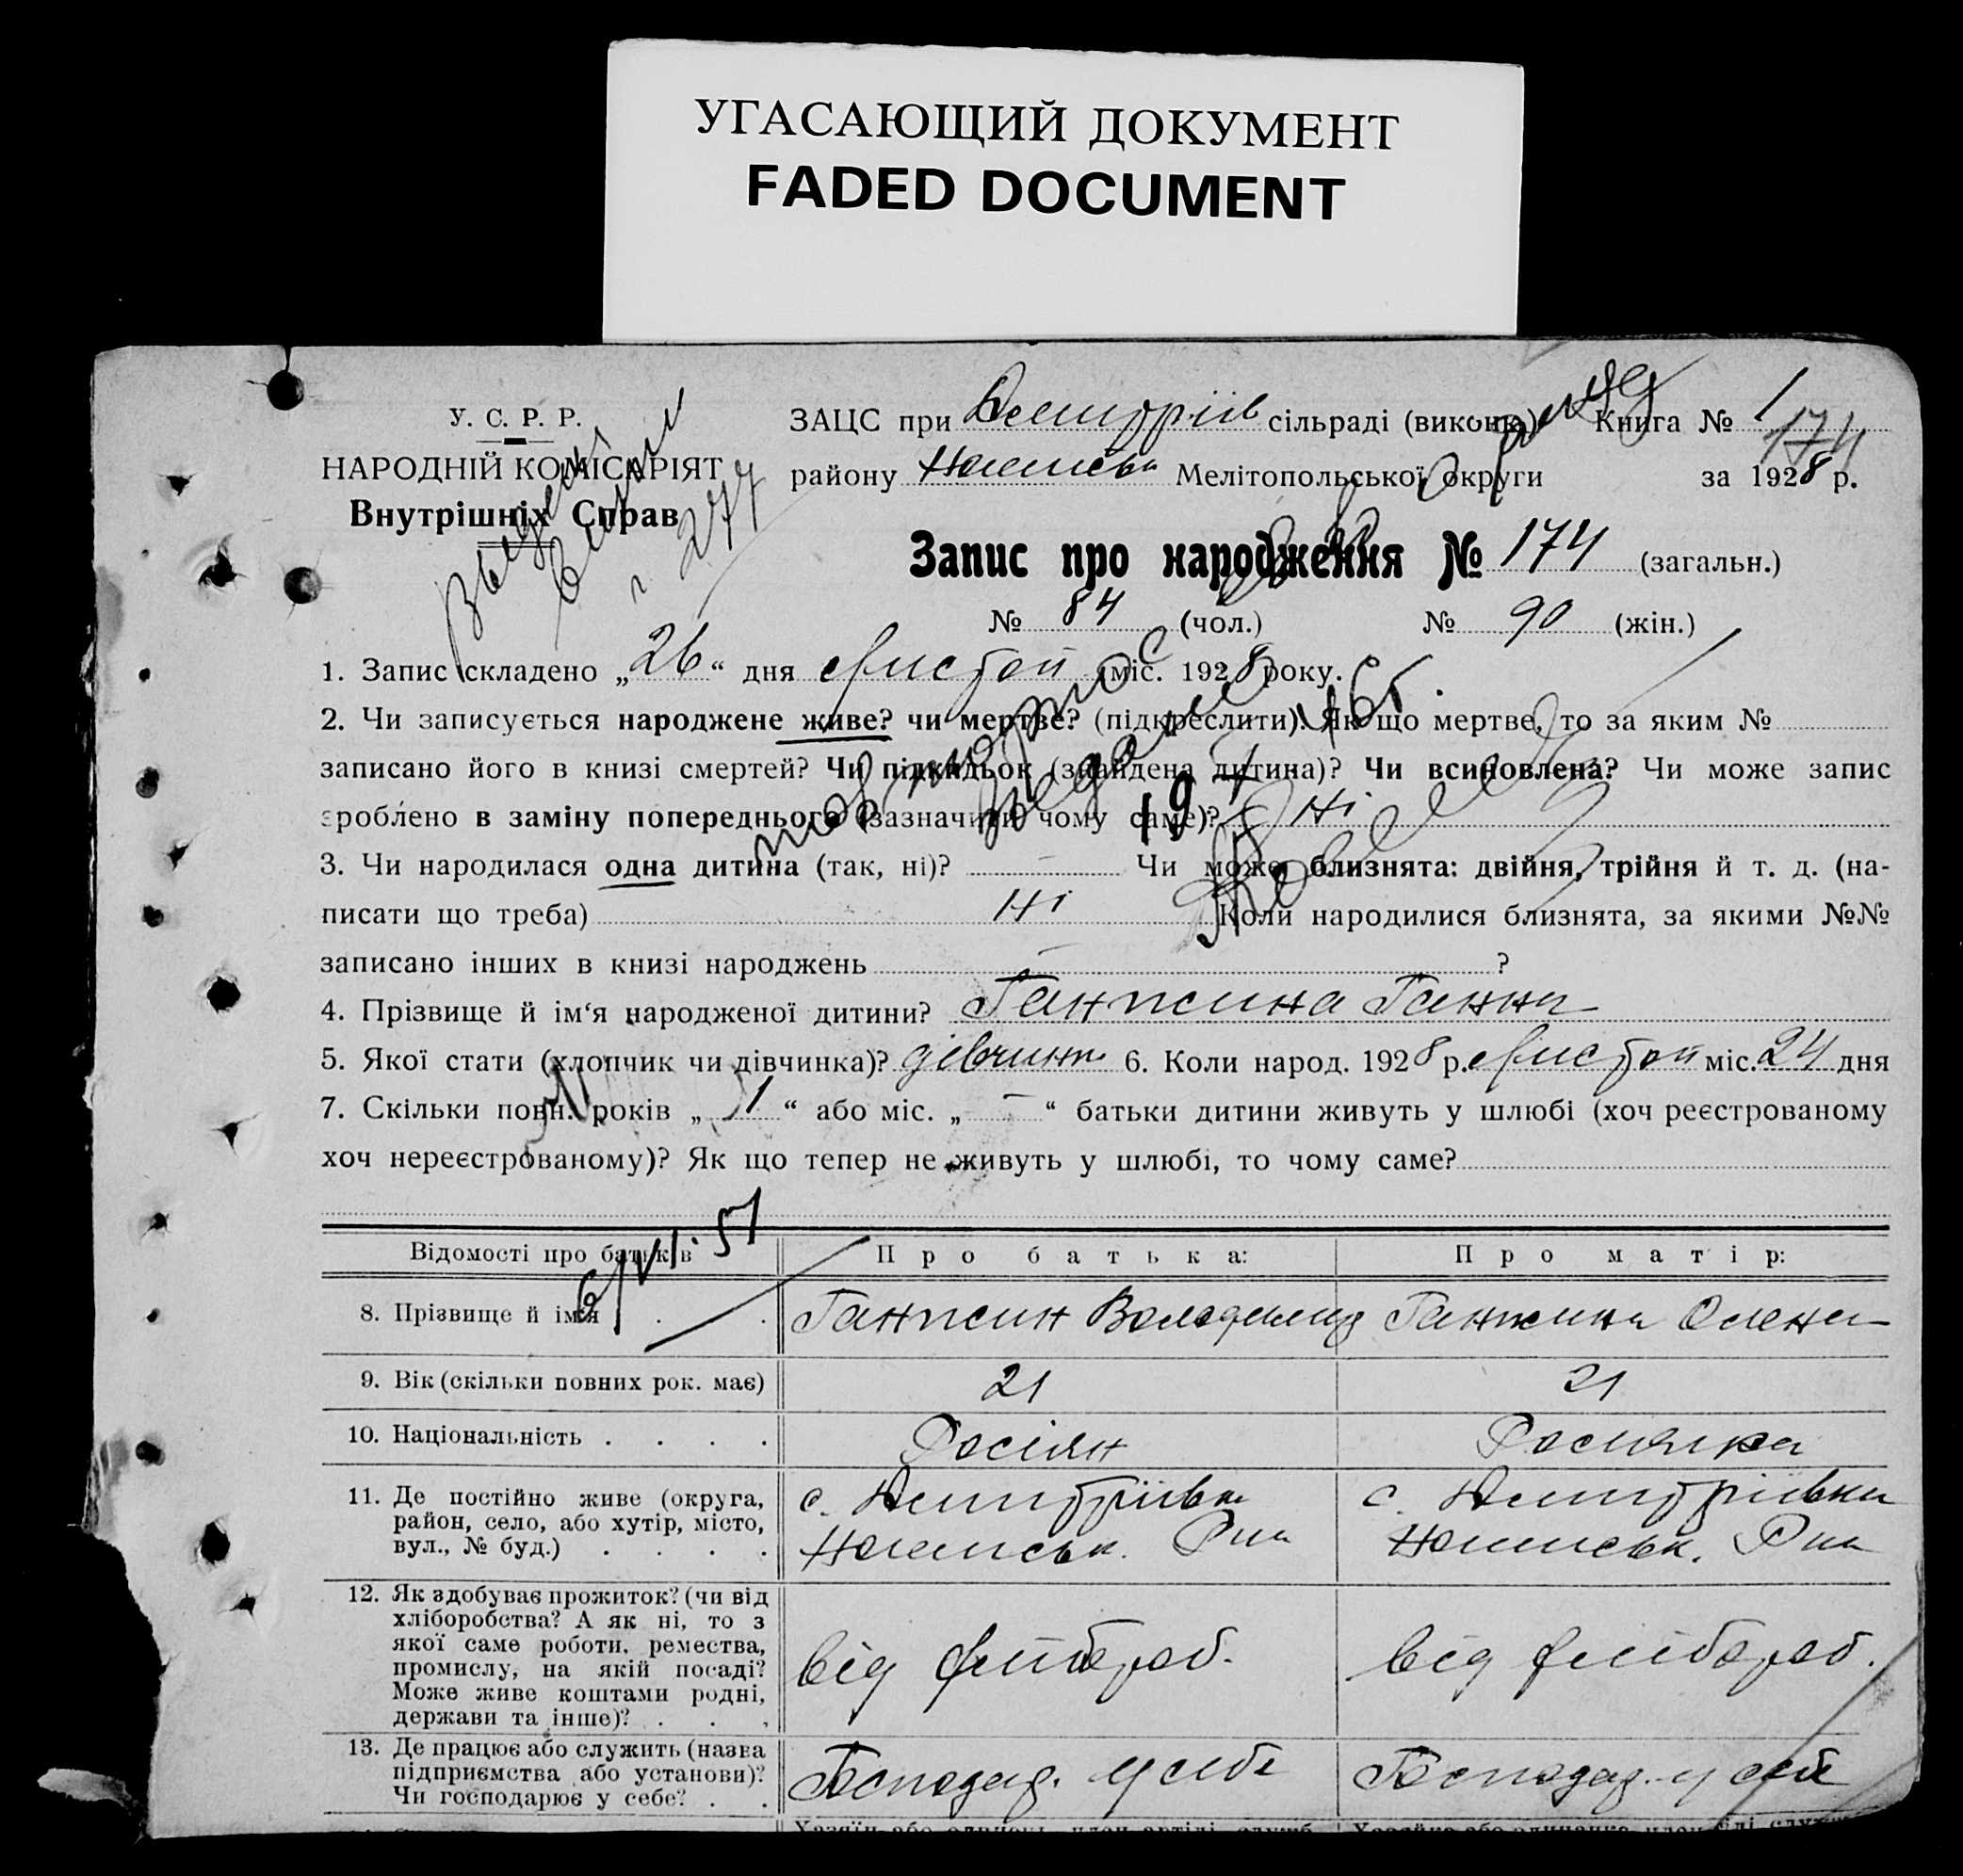 УГАСАЮЩИЙ ДОКУМЕНТ
FADED DOCUMENT
У. С. Р. Р.
НАРОДНІЙ КОМІСАРІЯТ
Внутрішніх Справ
277
ЗАЦС при Дмитріїв сільраді (виконк.) Книга № 1
174
району Мелітопольської округи за 1928 р.
Запис про народження № 174 (загальн.)
№ 84 (чол.) № 90 (жін.)
1. Запис складено „26“ дня листоп міс. 1928 року.
2. Чи записується народжене живе? чи мертве? (підкреслити). Як що мертве, то за яким №
записано його в книзі смертей? Чи підкидьок (знайдена дитина)? Чи всиновлена? Чи може запис
зроблено в заміну попереднього (зазначити чому саме)? Ні
3. Чи народилася одна дитина (так, ні)? — Чи може близнята: двійня, трійня й т. д. (на-
писати що треба) Ні Коли народилися близнята, за якими №№
записано інших в книзі народжень — ?
4. Прізвище й ім‘я народженої дитини? Ганжина Ганна
5. Якої стати (хлопчик чи дівчинка)? дівчинк 6. Коли народ. 1928 р. листоп міс. 24 дня
7. Скільки повн. років „1“ або міс. „—“ батьки дитини живуть у шлюбі (хоч реєстрованому
хоч нереєстрованому)? Як що тепер не живуть у шлюбі, то чому саме?
6/VI 51
Відомості про батьків Про батька: Про матір:
8. Прізвище й ім‘я . . Ганжин Володимир Ганжина Олена
9. Вік (скільки повних рок. має) 21 21
10. Національність . . . . Росіян Росиянка
11. Де постійно живе (округа,
район, село, або хутір, місто,
вул., № буд.) . . . .
с. Дмитріївка с. Дмитріївка
12. Як здобуває прожиток? (чи від
хліборобства? А як ні, то з
якої саме роботи, ремества,
промислу, на якій посаді?
Може живе коштами родні,
держави та інше)? . . .
від хлібороб. від хлібороб.
13. Де працює або служить (назва
підприємства або установи)?
Чи господарює у себе? . .
Господар. у себе Господар. у себе